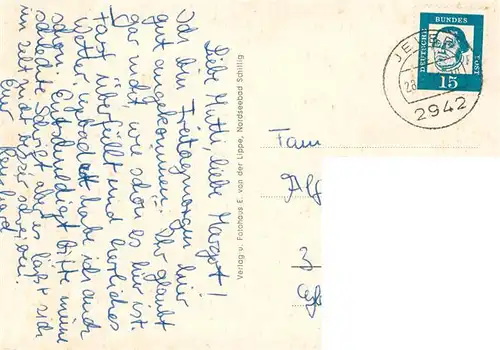 Liebe Mutti, liebe Margot!
Ich bin Freitagmorgen hier
gut angekommen. Ihr glaubt
gar nicht wie schön es hier ist.
Fast überfüllt und herrliches
Wetter. habe ich auch
schon. Entschuldigt bitte meine
schlechte Schrift, aber es läßt sich
im Zelt nicht besser schreiben.
Euer
Verlag u. Fotohaus E. van der Lippe, Nordseebad Schillig
DEUTSCHE
BUNDES
POST
15
JEV
28
2942
Fam
Alf
3